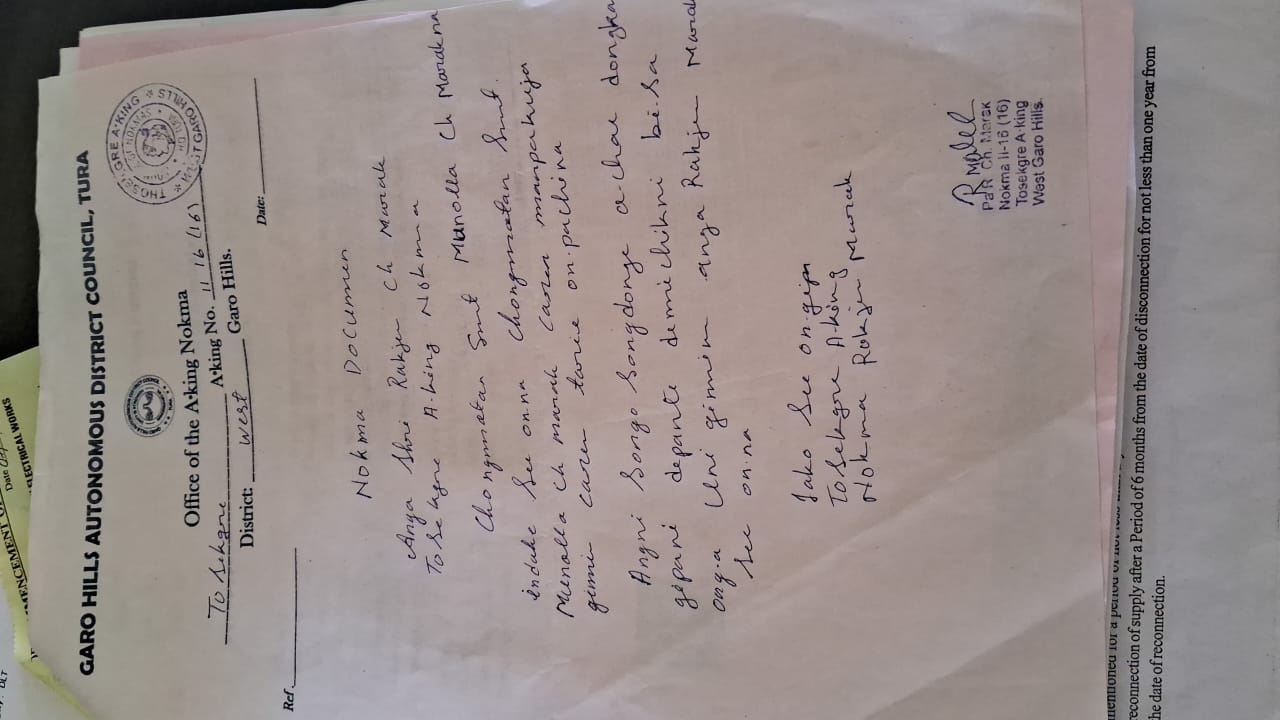 GARO HILLS AUTONOMOUS DISTRICT COUNCIL, TURA
Office of the A·king Nokma
Tosekgre A·king No. II 16 (16)
District: West Garo Hills.
Ref. Date:
THOSEKGRE A·KING * WEST GARO HILLS *
Nokma Documen
Anga Shri Rakjen Ch Marak
Tosekgre A·king Nokma
Chongmatan Smt Munolla Ch Marakna
indake See on·na Chongmatan Smt.
Munolla Ch marak caren manpakuja
gimin caren tarie on·pachina
Angni Songo Songdonge a·chae dongka
gipani depante demechikni be·sa
ong·a Uni gimin anga Rakjen Marak
See on·na
Iako See on·gipa
Tosekgre A·king
Nokma Rokjen Marak
Pa'R Ch. Marak
Nokma II-16 (16)
Tosekgre A·king
West Garo Hills.
Date
ELECTRICAL WORKS
reconnection of supply after a Period of 6 months from the date of disconnection for not less than one year from
the date of reconnection.